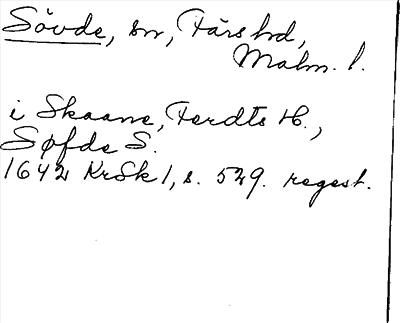 Sövde, sn, Färs hd,
Malm. l.
i Skaane, Ferdts H.,
Søfde S.
1642 KrSk 1, s. 529. regest.